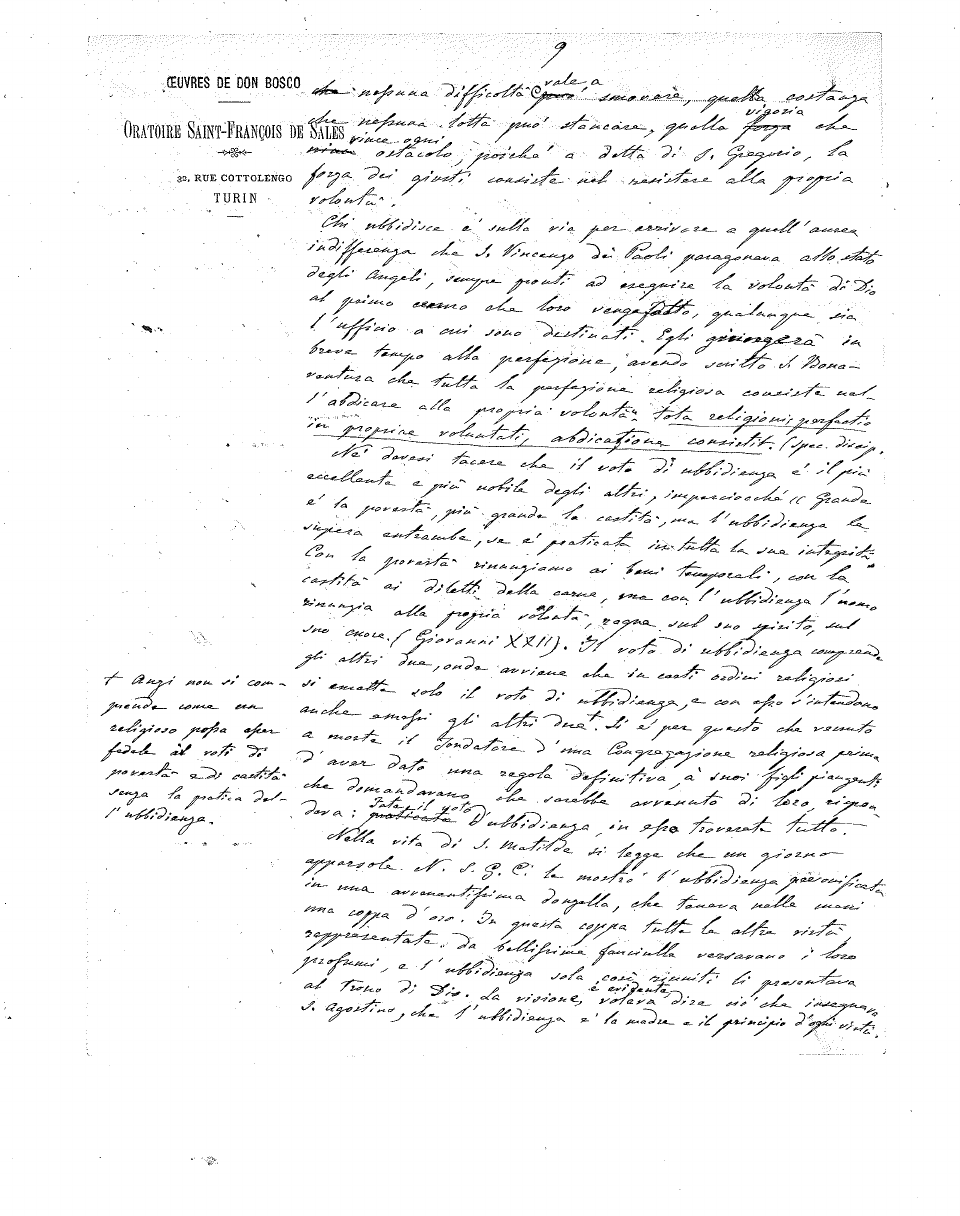 9
ŒUVRES DE DON BOSCO
ORATOIRE SAINT-FRANÇOIS DE SALES
32, RUE COTTOLENGO
TURIN
vale a
che nessuna difficoltà può smovere, quella costanza
vigoria
che nessuna lotta può stancare, quella forza che
vince ogni
vince ostacolo, poiché a detta di S. Gregorio, la
forza dei giusti consiste nel resistere alla propria
volontà.
Chi ubbidisce é sulla via per arrivare a quell'aurea
indifferenza che S. Vincenzo dei Paoli paragonava allo stato
degli Angeli, sempre pronti ad eseguire la volontà di Dio
al primo cenno che loro venga fatto, qualunque sia
l'ufficio a cui sono destinati. Egli giungerà in
breve tempo alla perfezione, avendo scritto S. Bona-
ventura che tutta la perfezione religiosa consiste nel-
l'abdicare alla propria volontà: tota religionis perfectio
in propriae voluntatis abdicatione consistit. (spec. discip.
Né devesi tacere che il voto di ubbidienza é il più
eccellente e più nobile degli altri, imperciocché « Grande
é la povertà, più grande la castità, ma l'ubbidienza le
supera entrambe, se é praticata in tutta la sua integrità.
Con la povertà rinunziamo ai beni temporali, con la
castità ai diletti della carne, ma con l'ubbidienza l'uomo
rinunzia alla propria volontà, regna sul suo spirito, sul
suo cuore. (Giovanni XXII). Il voto di ubbidienza comprende
gli altri due, onde avviene che in certi ordini religiosi
si emette solo il voto di ubbidienza, e con esso s'intendono
anche emessi gli altri due+. Si é per questo che venuto
a morte il Fondatore d'una Congregazione religiosa prima
d'aver dato una regola definitiva, a' suoi figli piangenti
che domandavano che sarebbe avvenuto di loro, rispon-
Fate il voto
deva: praticate l'ubbidienza, in essa troverete tutto.
+ Anzi non si com-
prende come un
religioso possa esser
fedele ai voti di
povertà e di castità
senza la pratica del-
l'ubbidienza.
Nella vita di S. Matilde si legge che un giorno
apparsole N. S. G. C. le mostrò l'ubbidienza personificata
in una avvenentissima donzella, che teneva nelle mani
una coppa d'oro. In questa coppa tutte le altre virtù
rappresentate da bellissime fanciulle versavano i loro
profumi, e l'ubbidienza sola così riuniti li presentava
é evidente
al trono di Dio. La visione, voleva dire ciò che insegnava
S. Agostino, che l'ubbidienza é la madre e il principio d'ogni virtù.